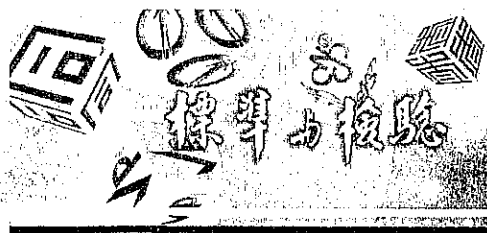 標準与檢驗